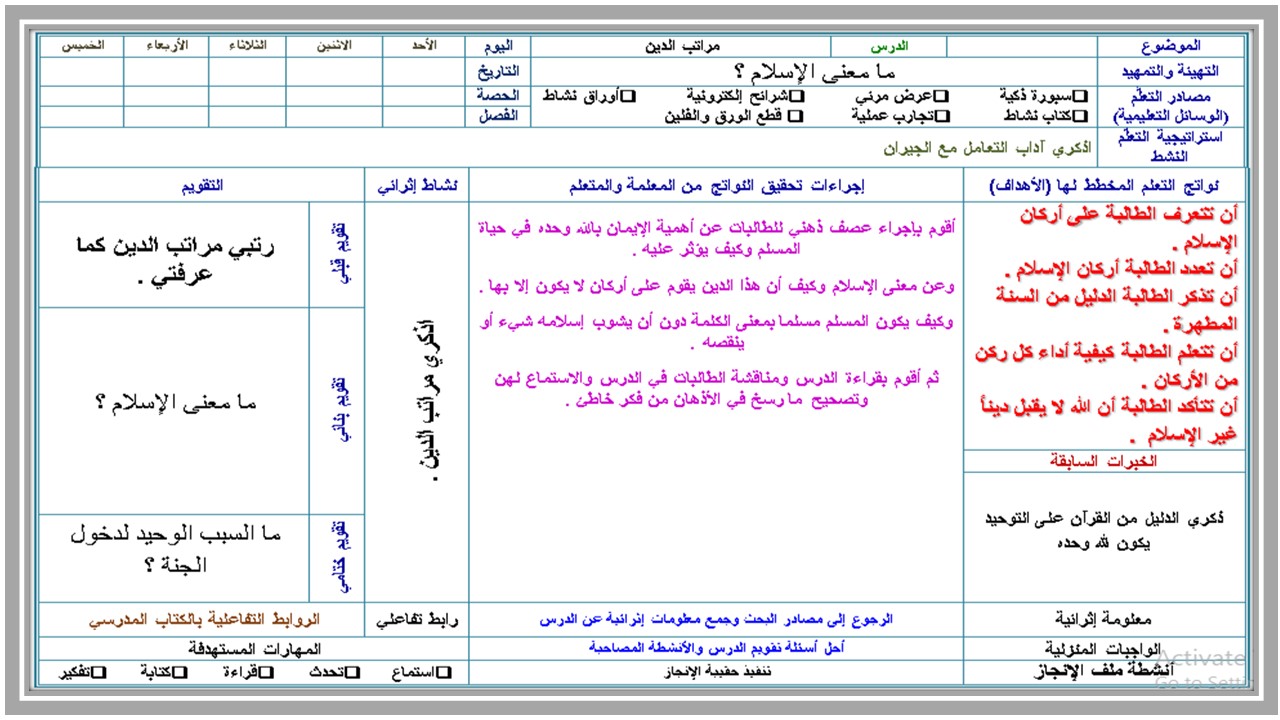 الموضوع
الدرس
مراتب الدين
اليوم
الأحد
الاثنين
الثلاثاء
الأربعاء
الخميس
التهيئة والتمهيد
ما معنى الإسلام ؟
التاريخ
مصادر التعلّم
(الوسائل التعليمية)
سبورة ذكية
عرض مرئي
شرائح إلكترونية
أوراق نشاط
الحصة
كتاب نشاط
تجارب عملية
قطع الورق والفلين
الفصل
استراتيجية التعلّم
النشط
اذكري آداب التعامل مع الجيران
نواتج التعلم المخطط لها (الأهداف)
إجراءات تحقيق النواتج من المعلمة والمتعلم
نشاط إثرائي
التقويم
أن تتعرف الطالبة على أركان
الإسلام .
أن تعدد الطالبة أركان الإسلام .
أن تذكر الطالبة الدليل من السنة
المطهرة .
أن تتعلم الطالبة كيفية أداء كل ركن
من الأركان .
أن تتأكد الطالبة أن الله لا يقبل ديناً
غير الإسلام .
الخبرات السابقة
ذكري الدليل من القرآن على التوحيد
يكون لله وحده
أقوم بإجراء عصف ذهني للطالبات عن أهمية الإيمان بالله وحده في حياة
المسلم وكيف يؤثر عليه .
وعن معنى الإسلام وكيف أن هذا الدين يقوم على أركان لا يكون إلا بها .
وكيف يكون المسلم مسلما بمعنى الكلمة دون أن يشوب إسلامه شيء أو
ينقصه .
ثم أقوم بقراءة الدرس ومناقشة الطالبات في الدرس والاستماع لهن
وتصحيح ما رسخ في الأذهان من فكر خاطئ .
اذكري مراتب الدين .
تقويم قبلي
رتبي مراتب الدين كما
عرفتي .
تقويم بنائي
ما معنى الإسلام ؟
تقويم ختامي
ما السبب الوحيد لدخول
الجنة ؟
معلومة إثرائية
الرجوع إلى مصادر البحث وجمع معلومات إثرائية عن الدرس
رابط تفاعلي
الروابط التفاعلية بالكتاب المدرسي
الواجبات المنزلية
أحل أسئلة تقويم الدرس والأنشطة المصاحبة
المهارات المستهدفة
أنشطة ملف الإنجاز
تنفيذ حقيبة الإنجاز
استماع
تحدث
قراءة
كتابة
تفكير
Activate
Go to Setti